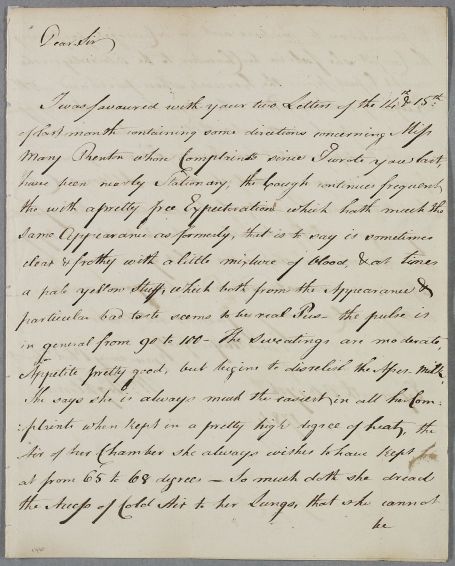 Dear Sir
I was favoured with your two Letters of the 14th & 15th
of last month containing some directions concerning Miss
Mary whose Complaints since I wrote you last,
have been nearly Stationary, the Cough continues frequent,
tho with a pretty free Expectoration which hath much the
same Appearance as formerly, that is to say is sometimes
clear & frothy with a little mixture of blood, & at times
a pale yellow Stuff, which both from the Appearance &
particular bad taste seems to be real Pus – the pulse is
in general from 90 to 100 – The Sweatings are moderate
Appetite pretty good, but begins to dislelish the Apes-milk,
She says she is always much the easiest in all her Com:
:plaints when kept in a pretty high degree of heat, the
Air of her Chamber she always wishes to have kept
at from 65 to 68 degrees – So much doth she dread
the Access of Cold Air to her Lungs, that she cannot
be